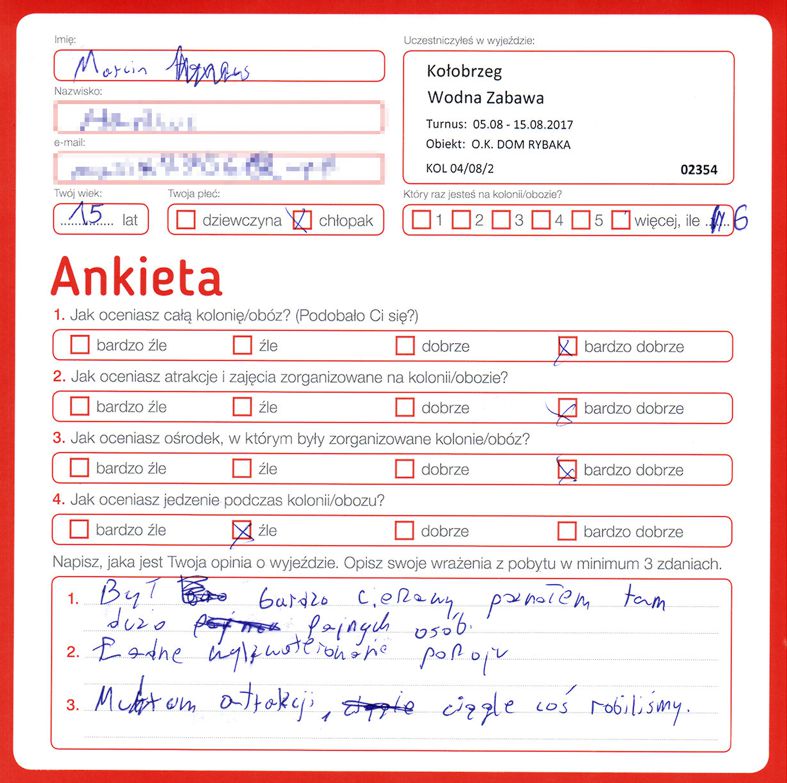 Imię:
Marcin
Uczestniczyłeś w wyjeździe:
Kołobrzeg
Wodna Zabawa
Turnus: 05.08 - 15.08.2017
Obiekt: O.K. DOM RYBAKA
KOL 04/08/2 02354
Nazwisko:
e-mail:
Twój wiek:
15 lat
Twoja płeć:
dziewczyna chłopak
Który raz jesteś na kolonii/obozie?
1 2 3 4 5 więcej, ile 6
Ankieta
1. Jak oceniasz całą kolonię/obóz? (Podobało Ci się?)
bardzo źle źle dobrze bardzo dobrze
2. Jak oceniasz atrakcje i zajęcia zorganizowane na kolonii/obozie?
bardzo źle źle dobrze bardzo dobrze
3. Jak oceniasz ośrodek, w którym były zorganizowane kolonie/obóz?
bardzo źle źle dobrze bardzo dobrze
4. Jak oceniasz jedzenie podczas kolonii/obozu?
bardzo źle źle dobrze bardzo dobrze
Napisz, jaka jest Twoja opinia o wyjeździe. Opisz swoje wrażenia z pobytu w minimum 3 zdaniach.
1. Był bardzo ciekawy, poznałem tam
dużo fajnych osób.
2. Ładne pokoju
3. atrakcji, ciągle coś robiliśmy.